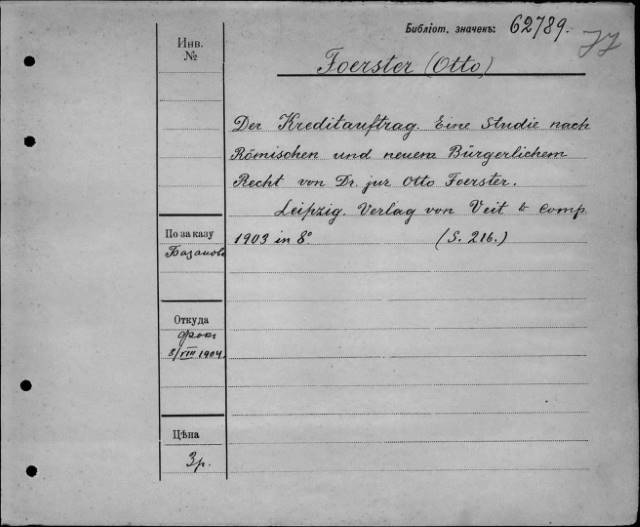 Библіот. значекъ: 62789.
Инв.
№
Foerster (Otto)
Der Kreditauftrag. Eine Studie nach
Römischen und neuem Bürgerlichem
Recht von Dr. jur Otto Foerster.
Leipzig. Verlag von Veit & Comp.
1903 in 8° (S. 216.)
По заказу
Базанова
Откуда
8/VIII 1904.
Цѣна
3р.